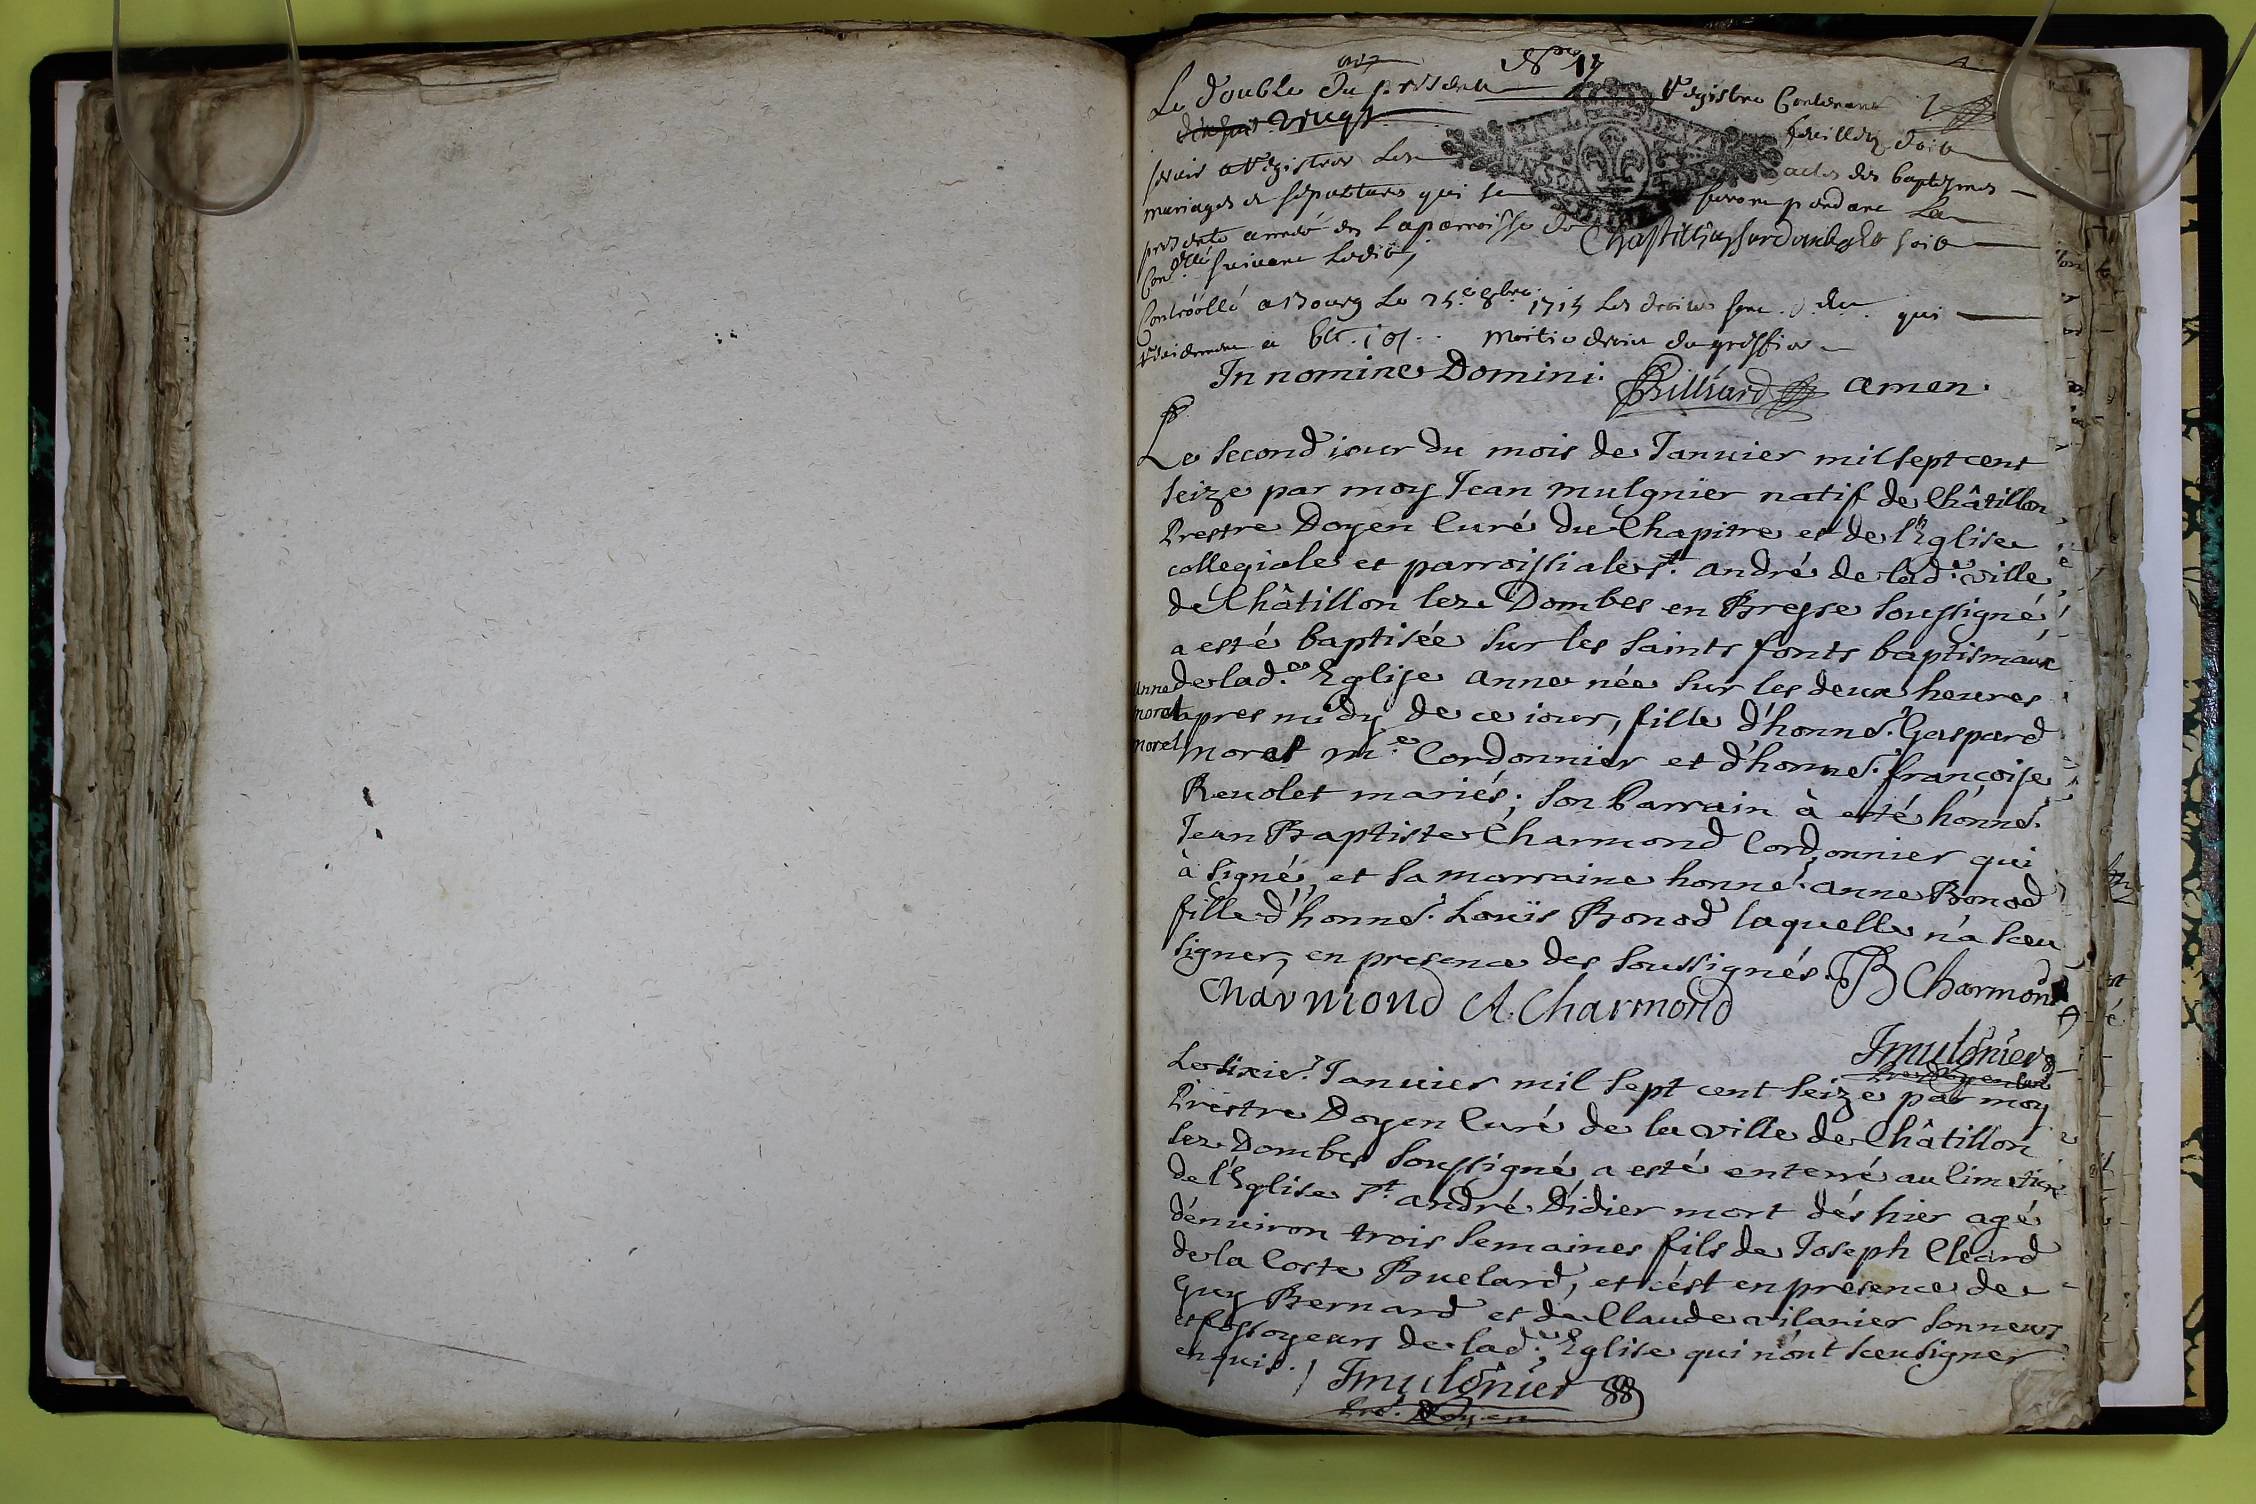 Le double du present Registre Contenant
vingt feuillets doit
servir a Registrer Les actes des baptesmes
mariages et sepultures qui se feront pendant La
presente année de Laparroisse de Chastillon sur
suivant Ledit,
Controollé a Bourg Le 25.e 8bre 1715 Les droits qui
moitie droict du greffier
In nomine Domini. Billiard amen.
Le second iour du mois de Ianuier mil sept cent
seize par moy Iean mulgnier natif de Châtillon,
Prestre Doyen Curé du Chapitre et de l'Eglise
collegiale et parroissiale st. andré de lad.e ville
de Châtillon lez Dombes en Bresse soussigné
a esté baptisée sur les saints fonts baptismaux
de lad.e Eglise anne née sur les deux heures
apres midy de ce iour, fille d'honne. Gaspard
morel m.e Cordonnier et d'honne. françoise
Reuolet mariés; son Parrain à esté honne.
Iean Baptiste Charmond Cordonnier qui
à signé, et sa marraine honne. anne Bonod
fille d'honne. Louïs Bonod laquelle n'a sceu
signer, en presence des soussignés. JB Charmond
Anne
morel
Charmond A. Charmond
Jmulgnier
Le sixie. Ianuier mil sept cent seize par moy
Prestre Doyen Curé de la ville de Châtillon
lez Dombes soussigné a esté enterré au Cimetiere
de l'Eglise st andré Didier mort dés hier agé
d'enuiron trois semaines fils de Ioseph Cleard
de la Coste Buelard, et c'ést en présence de
Guy Bernard et de Claude vilanier sonneurs
et fossoyeurs de lad.e Eglise qui n'ont sceu signer
enquis. Jmulgnier
Pre. Doyen